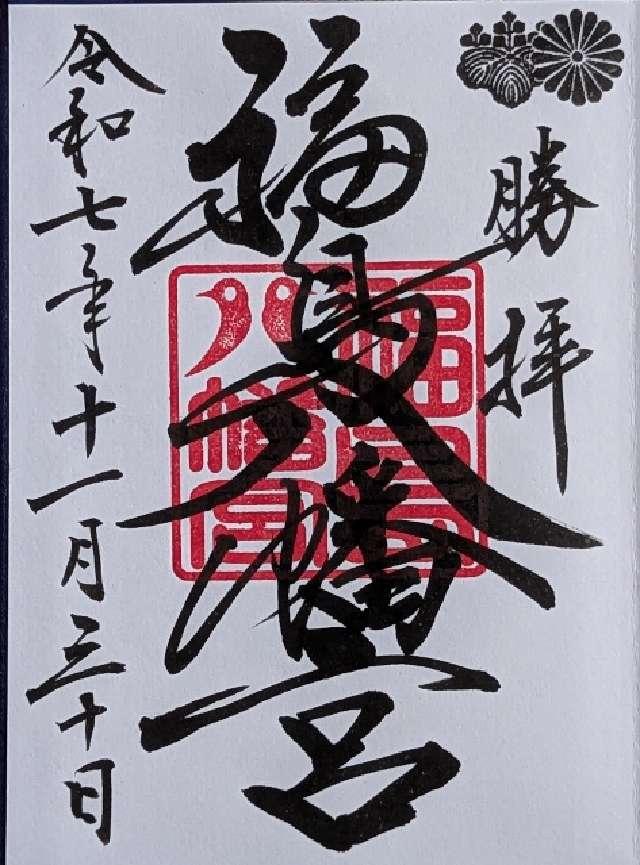 勝拝
福島八幡宮
福島
八幡宮
令和七年十一月三十日